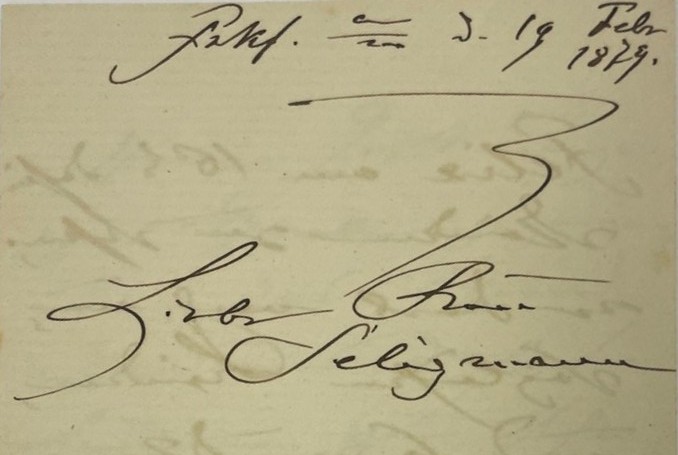 Frkf. a/m d. 19 Febr
1879.
Lieber
Seligmann